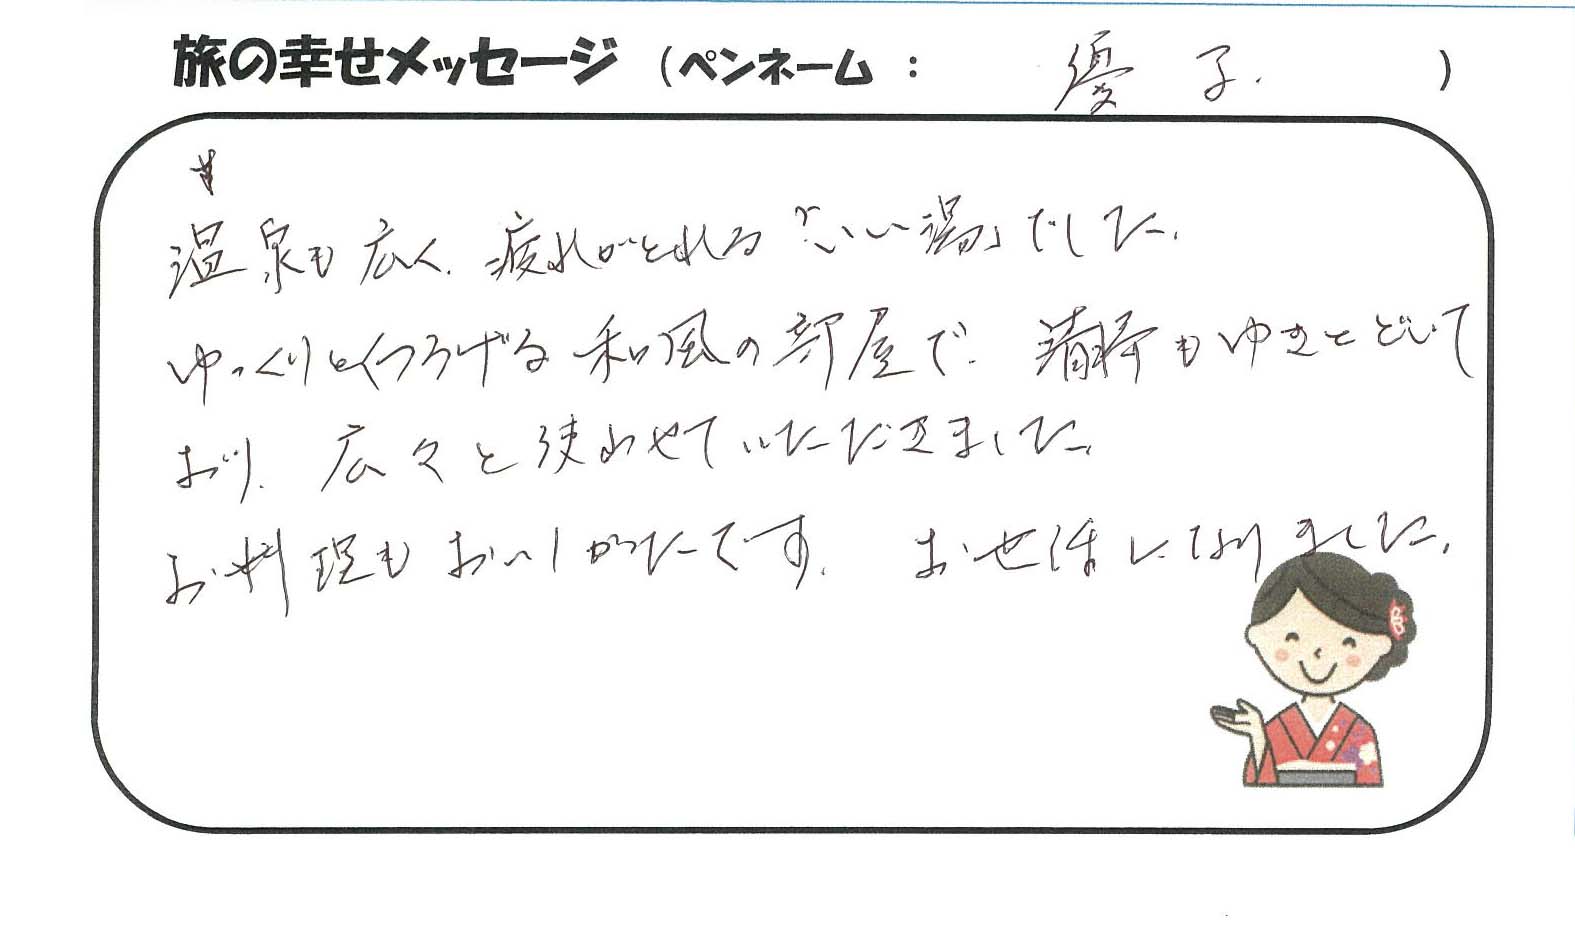 旅の幸せメッセージ (ペンネーム : 優子. )
温泉も広く、疲れがとれる「いい湯」でした。
ゆっくりとくつろげる和風の部屋で、清掃もゆきとどいて
おり、広々と使わせていただきました。
お料理もおいしかったです。 お世話になりました。